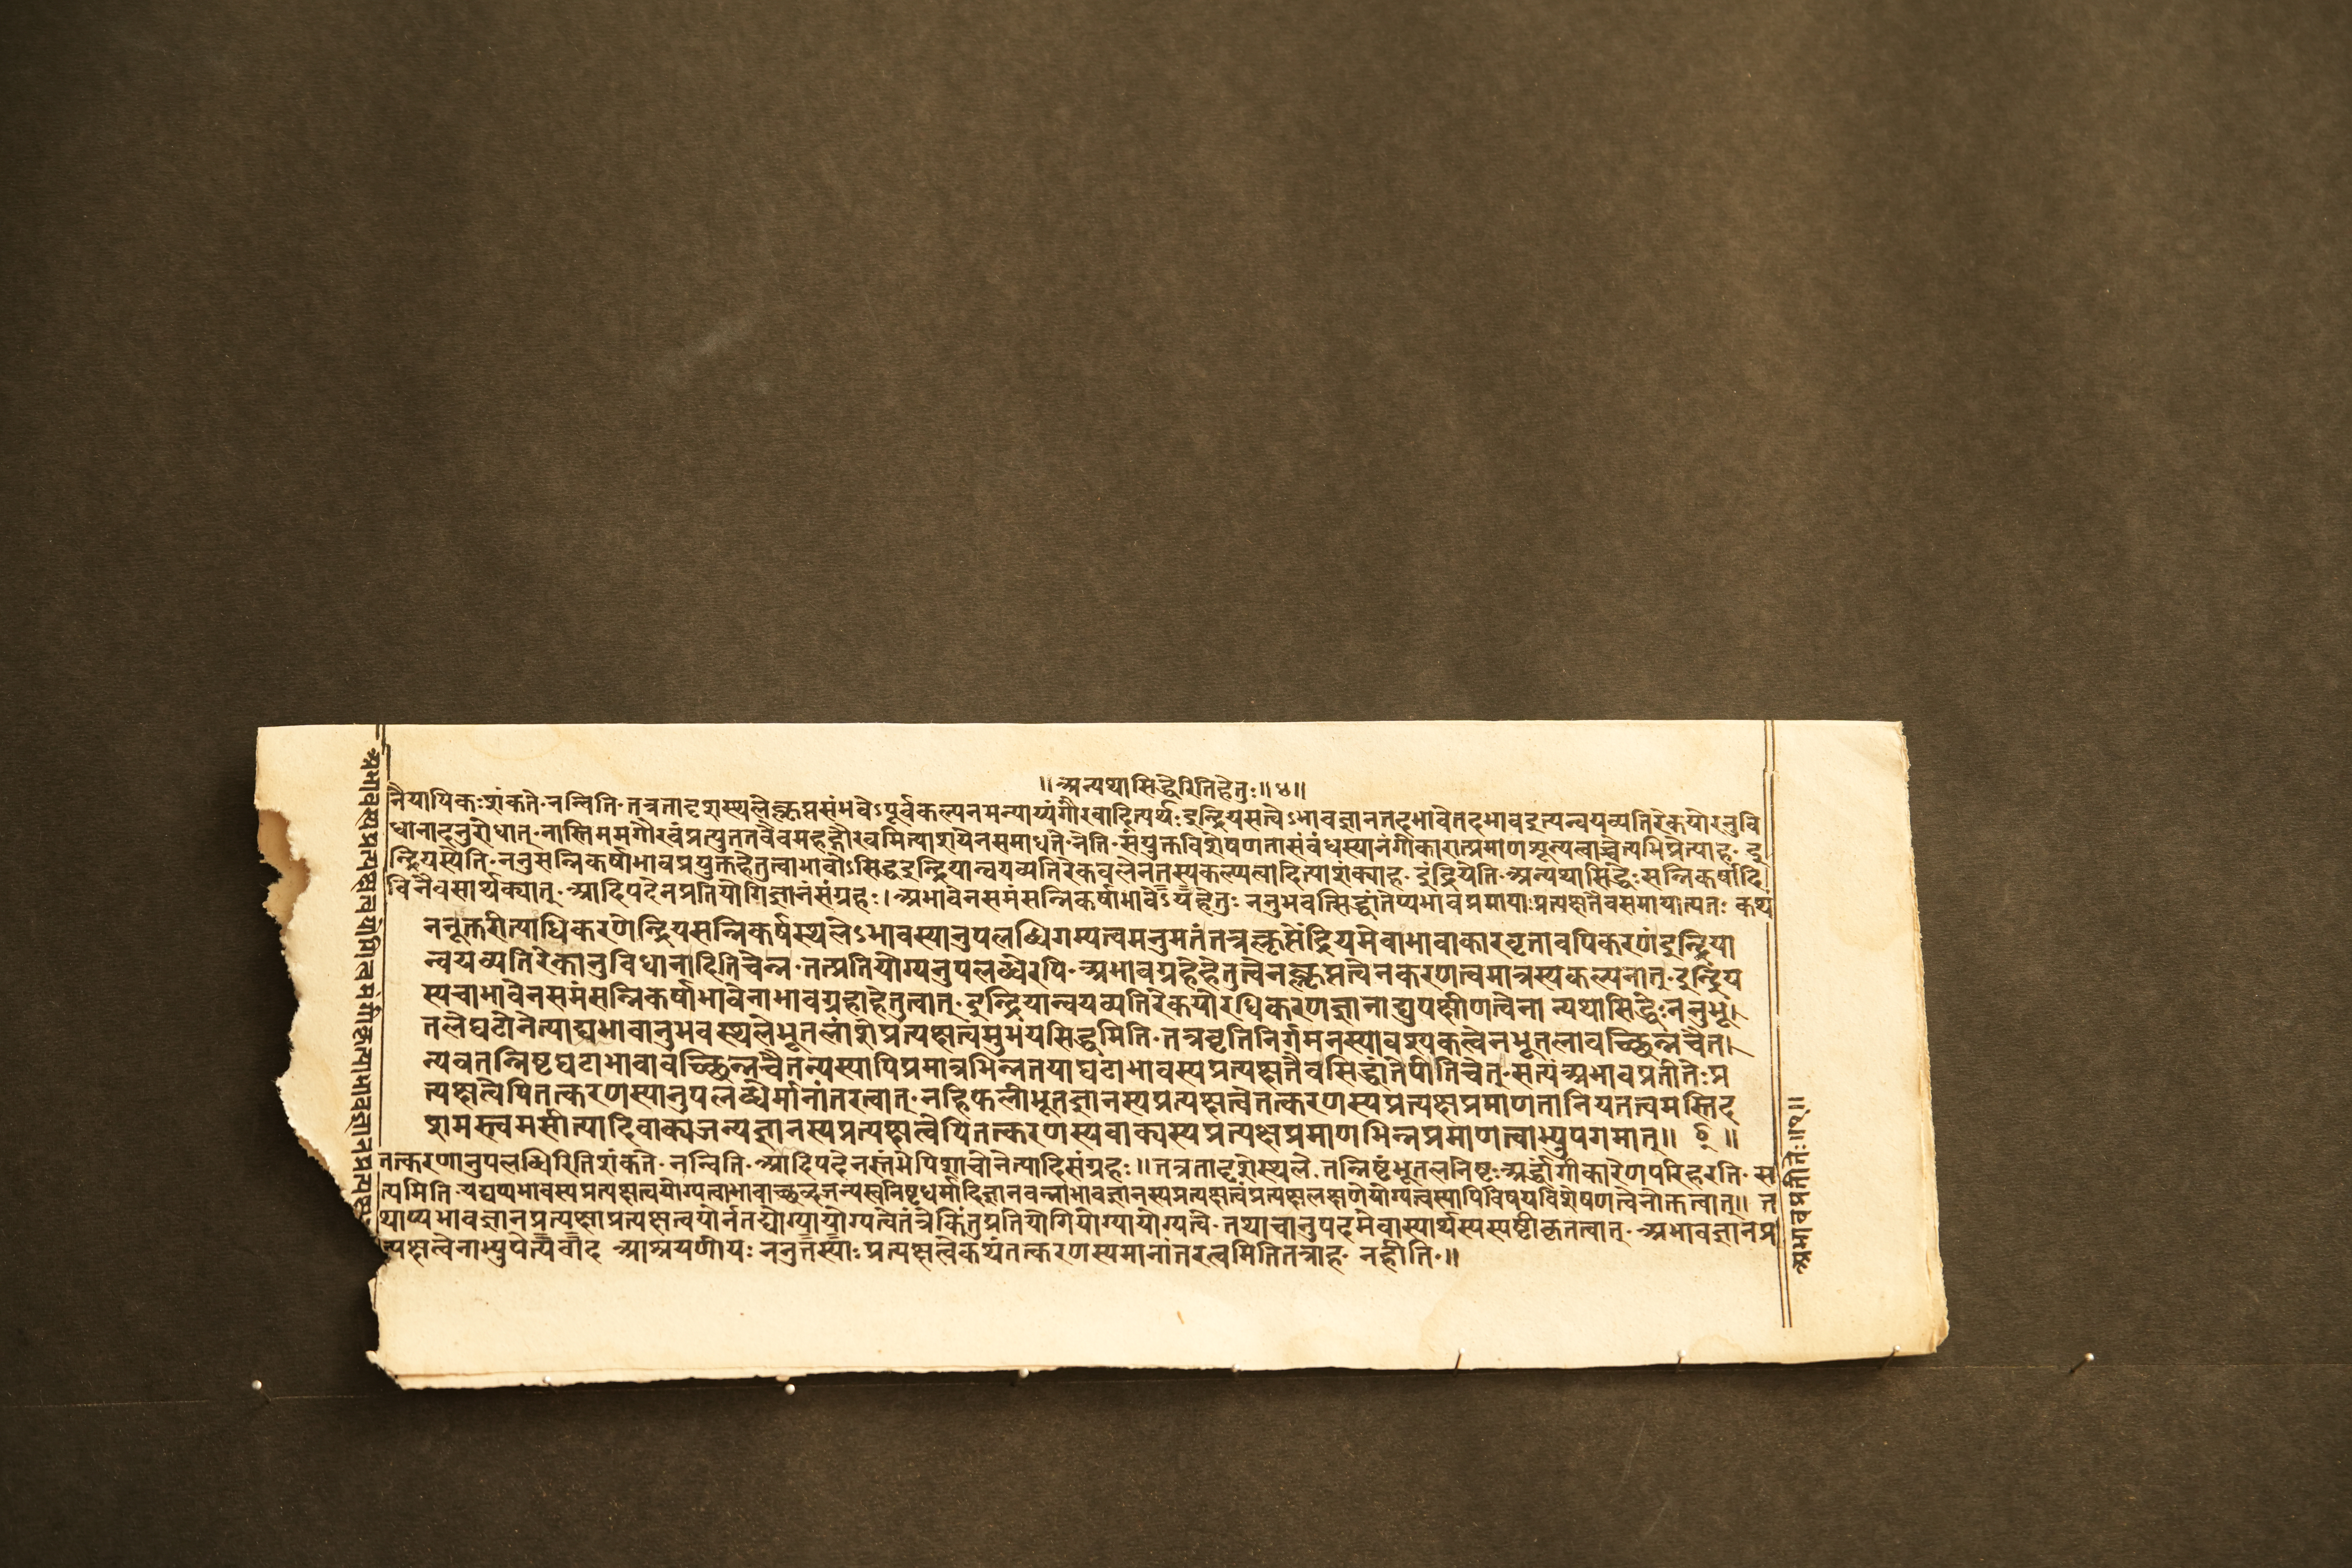 ॥अन्यथासिद्धेरितिहेतुः॥४॥
नैयायिकःशंकते·नन्विति·तत्रतादृशस्थलेक्लृप्तसंभवेऽपूर्वकल्पनमन्याय्यंगौरवादित्यर्थः·इन्द्रियसत्वेऽभावज्ञानतदभावेतदभावइत्यन्वयव्यतिरेकयोरनुवि
धानादनुरोधात्·नास्तिममगौरवंप्रत्युततवैवमहद्गौरवमित्याशयेनसमाधत्ते·नेति·संयुक्तविशेषणतासंबंधस्यानंगीकारात्प्रमाणशून्यत्वाच्चेत्यभिप्रेत्याह· इ
न्द्रियस्येति·ननुसन्निकर्षाभावप्रयुक्तहेतुत्वाभावोऽसिद्धइन्द्रियान्वयव्यतिरेकबलेनतस्यकल्प्यत्वादित्याशंक्याह· इंद्रियेति·अन्यथासिद्धेःसन्निकर्षादि
विनैवसार्थक्यात्·आदिपदेनप्रतियोगिज्ञानसंग्रहः।अभावेनसमंसन्निकर्षाभावेऽयंहेतुः ननुभवत्सिद्धांतेप्यभावप्रमायाःप्रत्यक्षतैवसमायात्यतः कथं
ननूक्तरीत्याधिकरणेन्द्रियसन्निकर्षस्थलेऽभावस्यानुपलब्धिगम्यत्वमनुमतंतत्रक्लृप्तेंद्रियमेवाभावाकारवृत्तावपिकरणंइन्द्रिया
न्वयव्यतिरेकानुविधानादितिचेन्न·तत्प्रतियोग्यनुपलब्धेरपि·अभावग्रहेहेतुत्वेनक्लृप्तत्वेनकरणत्वमात्रस्यकल्पनात्·इन्द्रिय
स्यचाभावेनसमंसन्निकर्षाभावेनाभावग्रहाहेतुत्वात्·इन्द्रियान्वयव्यतिरेकयोरधिकरणज्ञानाद्युपक्षीणत्वेना न्यथासिद्धेः·ननुभू।
तलेघटोनेत्याद्यभावानुभवस्थलेभूतलांशेप्रत्यक्षत्वमुभयसिद्धमिति·तत्रवृत्तिनिर्गमनस्यावश्यकत्वेनभूतलावच्छिन्नचैत।
न्यवतन्निष्टघटाभावावच्छिन्नचैतन्यस्यापिप्रमात्रभिन्नतयाघटाभावस्यप्रत्यक्षतैवसिद्धांतेपीतिचेत्·सत्यंअभावप्रतीतेःप्र
त्यक्षत्वेपितत्करणस्यानुपलब्धेर्मानांतरत्वात्·नहिफलीभूतज्ञानस्यप्रत्यक्षत्वेतत्करणस्यप्रत्यक्षप्रमाणतानियतत्वमस्तिद
शमस्त्वमसीत्यादिवाक्यजन्यज्ञानस्यप्रत्यक्षत्वेपितत्करणस्यवाक्यस्यप्रत्यक्षप्रमाणभिन्नप्रमाणत्वाभ्युपगमात्॥ ॥
तत्करणानुपलब्धिरितिशंकते· नन्विति·आदिपदेनस्तंभेपिशाचोनेत्यादिसंग्रहः॥तत्रतादृशेस्थले· तन्निष्टंभूतलनिष्टः·अर्द्धांगीकारेणपरिहरति·स
त्यमिति·यद्यप्यभावस्यप्रत्यक्षत्वयोग्यत्वाभावाच्छब्दजन्यस्वनिष्टधर्मादिज्ञानवन्नाभावज्ञानस्यप्रत्यक्षत्वंप्रत्यक्षलक्षणेयोग्यत्वस्यापिविषयविशेषणत्वेनोक्तत्वात्॥ त
थाप्यभावज्ञानप्रत्यक्षाप्रत्यक्षत्वयोर्नतद्योग्यायोग्यत्वेतंत्रंकिंतुप्रतियोगियोग्यायोग्यत्वे·तथाचानुपदमेवास्यार्थस्यस्पष्टीकृतत्वात्·अभावज्ञानप्र
त्यक्षत्वेनाभ्युपेत्यवाद आश्रयणीयः ननुतस्याः प्रत्यक्षत्वेकथंतत्करणस्यमानांतरत्वमितितत्राह· नहीति·॥
अभावप्रतीतेः॥१॥